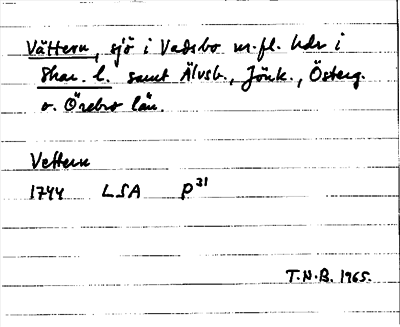 Vättern, sjö i Vadsbo m.fl. hdr i
Skar. l. samt Älvsb., Jönk., Österg.
o. Örebro län.
Vettern
1744 LSA P31
T.N.B. 1965.